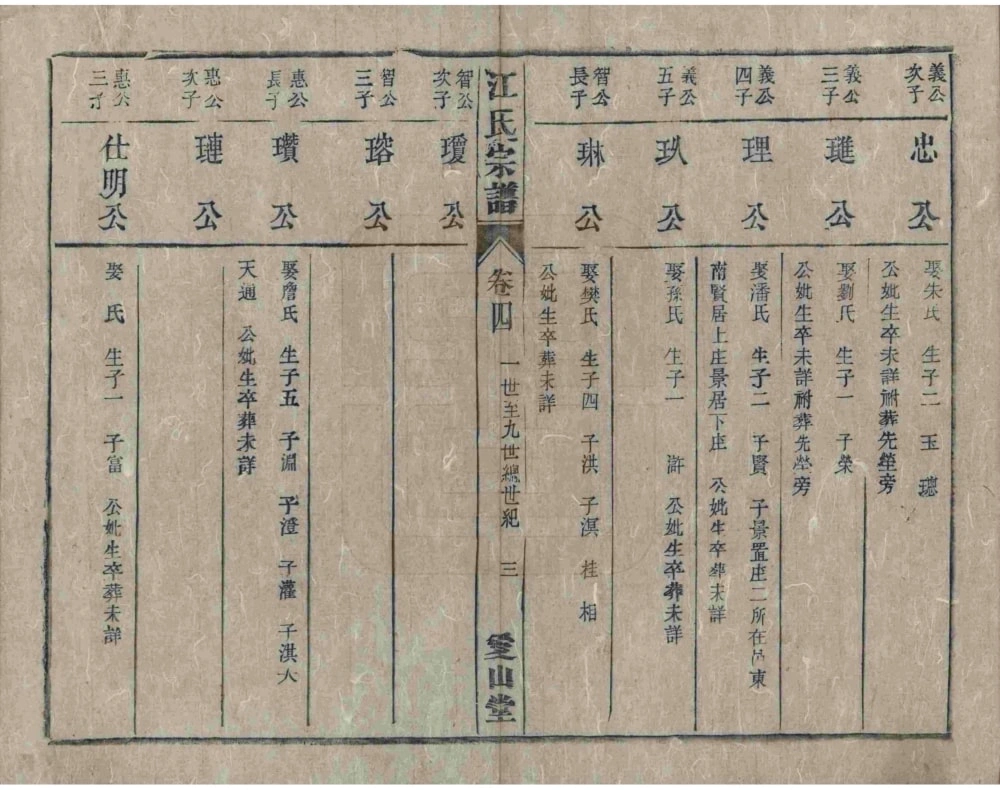 義公
次子
忠公
娶朱氏 生子二 玉 璁
公妣生卒未詳祔葬先塋旁
義公
三子
璡公
娶劉氏 生子一 子榮
公妣生卒未詳祔葬先塋旁
義公
四子
理公
娶潘氏 生子二 子賢 子景置庄二所在邑東
南賢居上庄景居下庄 公妣生卒葬未詳
義公
五子
玖公
娶孫氏 生子一 滸 公妣生卒葬未詳
智公
長子
琳公
娶樊氏 生子四 子洪 子溟 桂 相
公妣生卒葬未詳
江氏宗譜
卷四 一世至九世總世紀 三
愛山堂
智公
次子
瓊公
智公
三子
瑢公
惠公
長子
瓚公
娶詹氏 生子五 子淵 子澄 子瀍 子淇大
天通 公妣生卒葬未詳
惠公
次子
璉公
惠公
三子
仕明公
娶 氏 生子一 子富 公妣生卒葬未詳